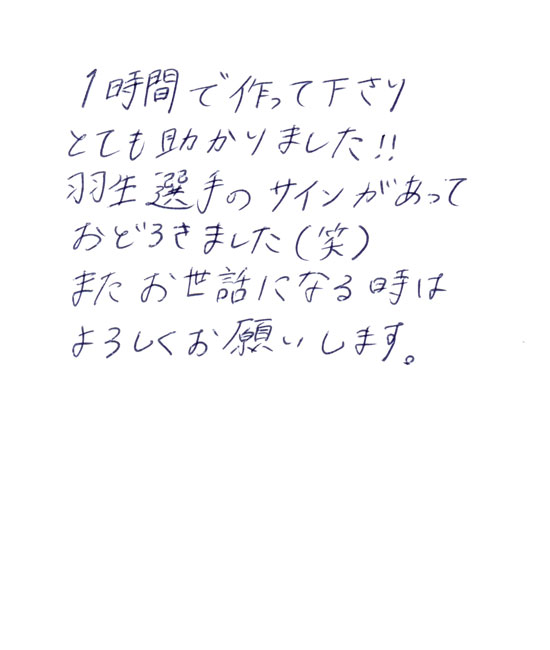 1時間で作って下さり
とても助かりました!!
羽生選手のサインがあって
おどろきました(笑)
またお世話になる時は
よろしくお願いします。